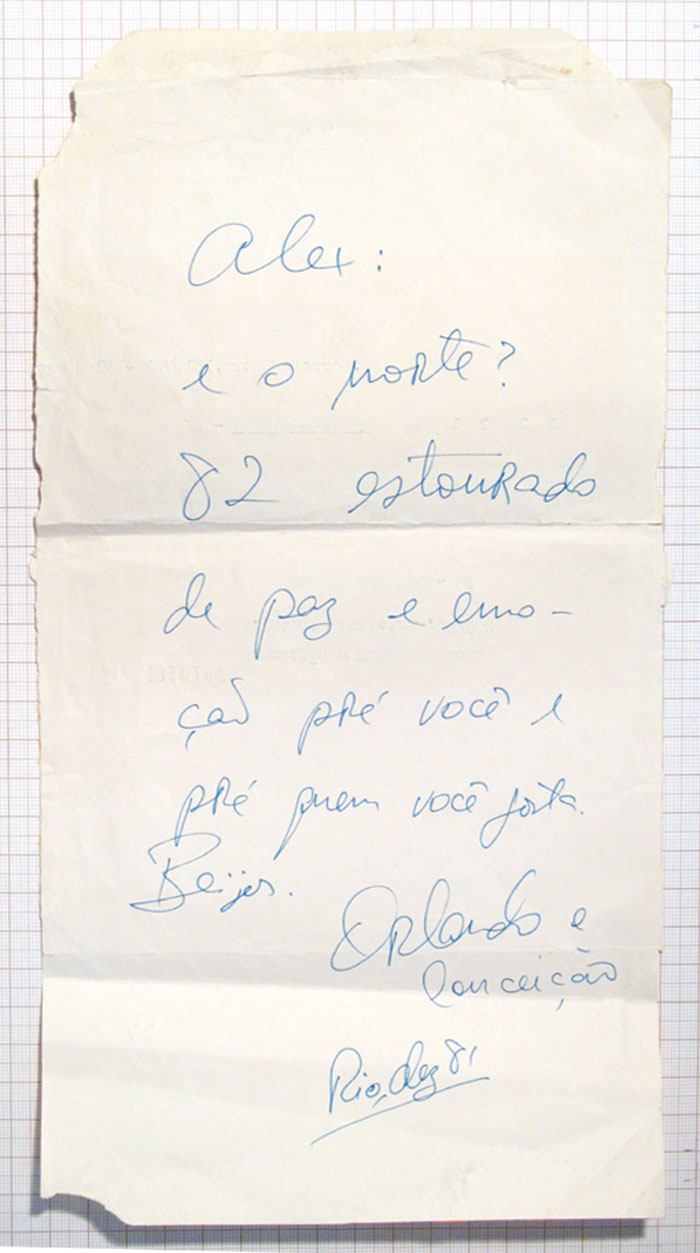 Alex:
e o norte?
82 estourado
de paz e emo-
ção pré você e
pré quem você gosta.
Beijos.
Orlando e
Conceição
Rio, dez 81